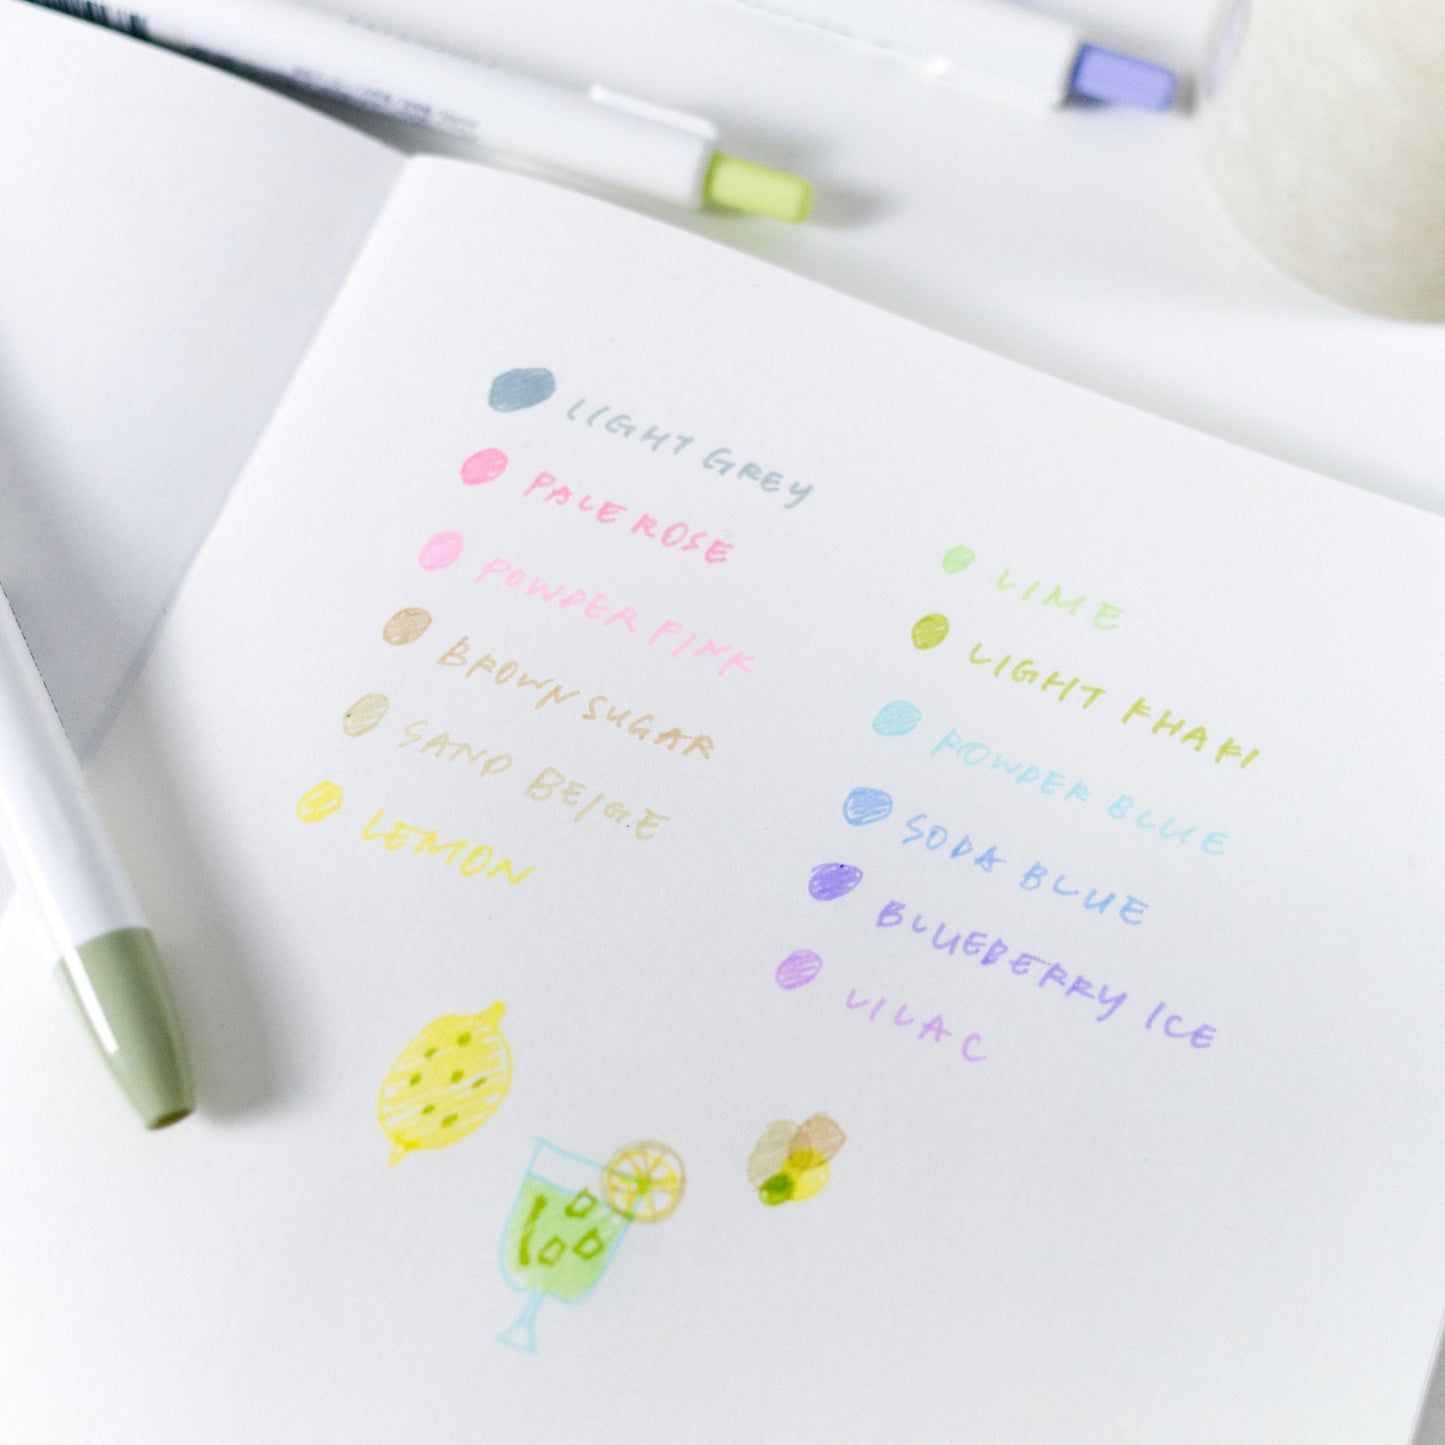 LIGHT GREY
PALE ROSE
POWDER PINK
BROWN SUGAR
SAND BEIGE
LEMON
LIME
LIGHT KHAKI
POWDER BLUE
SODA BLUE
BLUEBERRY ICE
LILAC